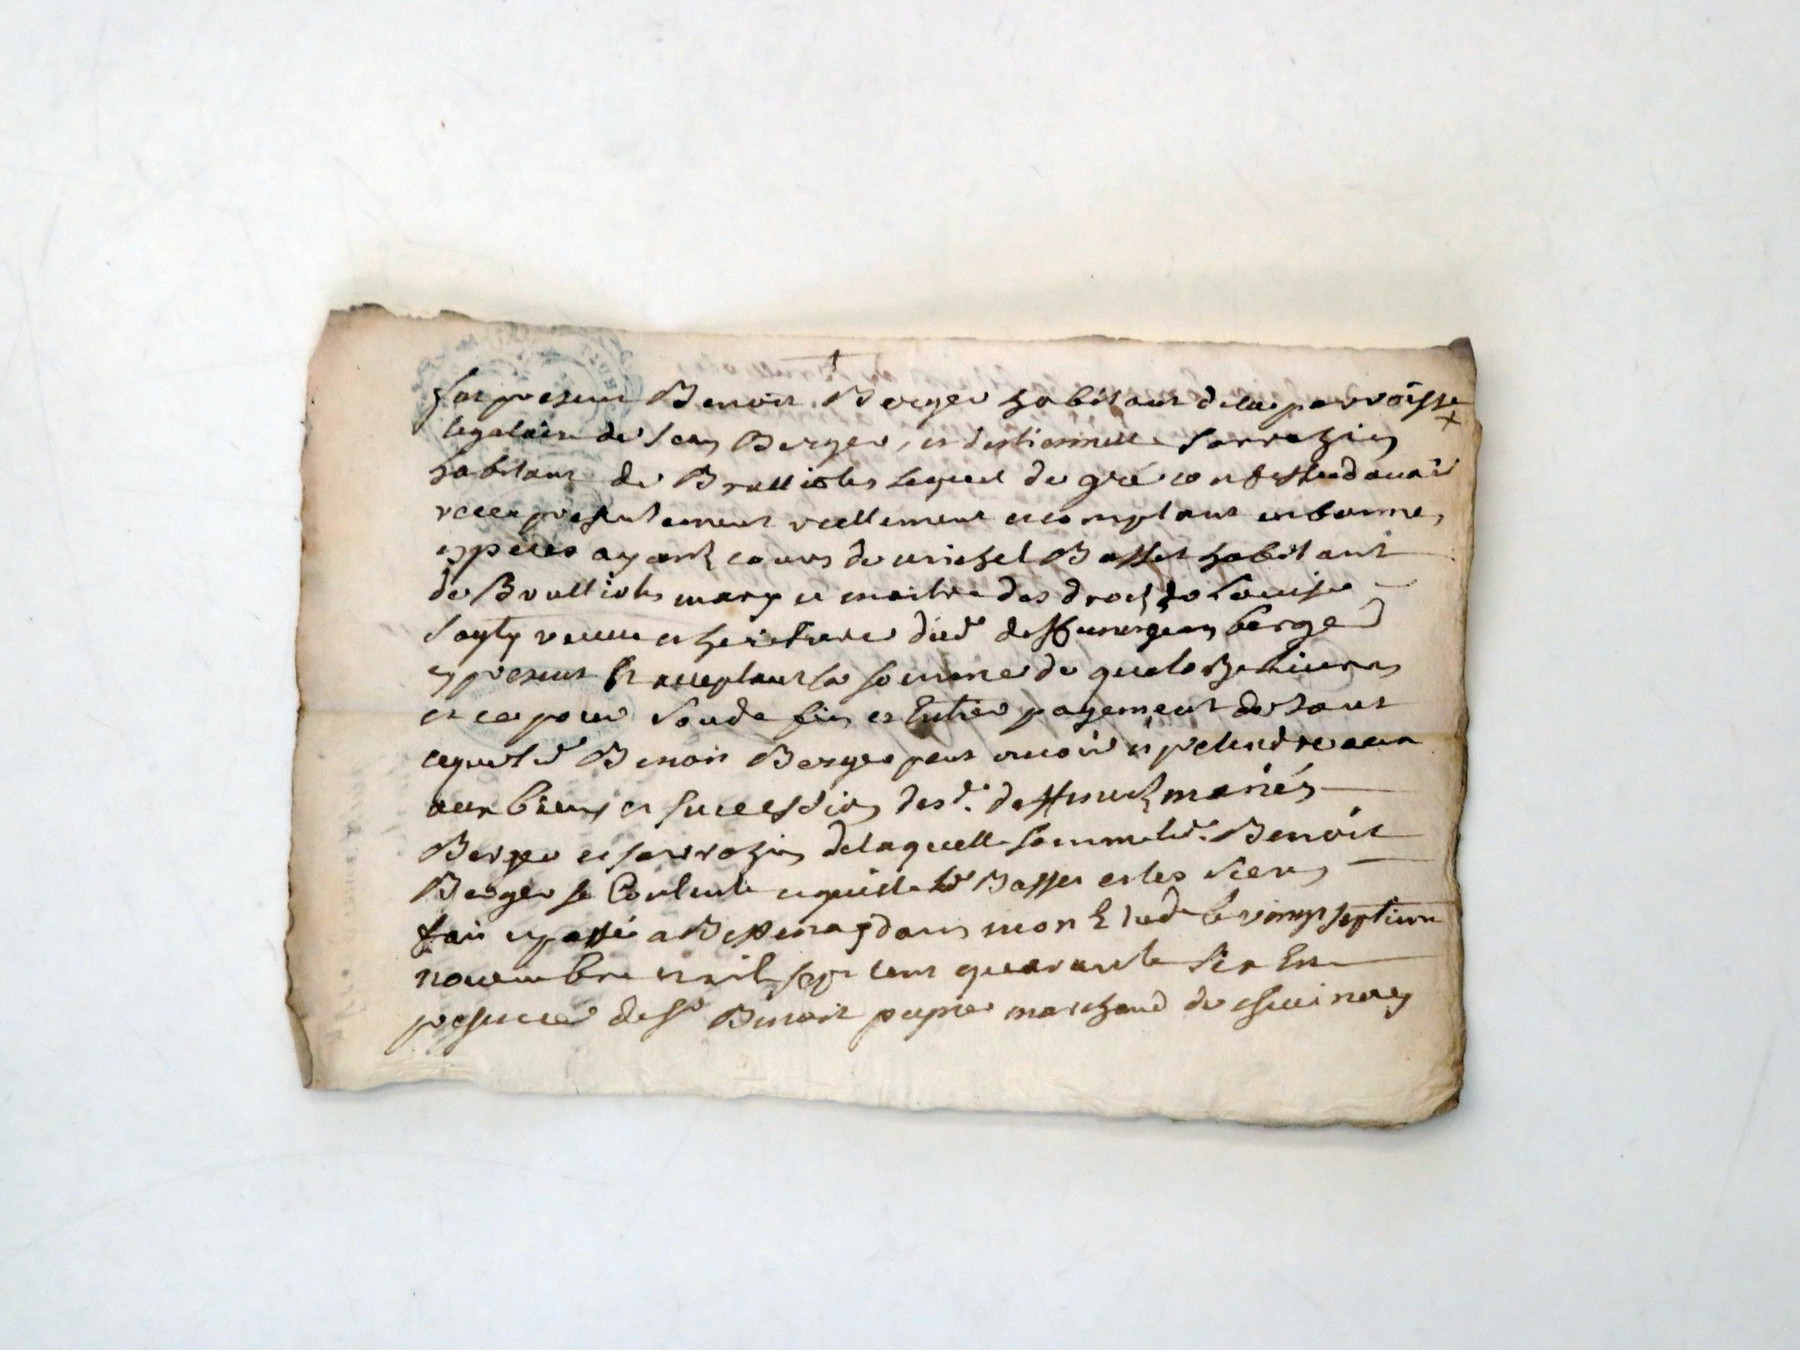 fut present Benoit Berger habitant dela parroisse
legataire de Jean Berger, et destiennette Sarrazin
habitant de Brullioles lequel de gré confesse davoir
receu presentement reellement et comptant en bonnes
espèces ayant cours de michel Basset habitant
de Brullioles mary et maitre des droits de Louise
veuve et heritiere dud deffunt jean berger
cy present et acceptant la somme de quatorze livres
et ce pour soude fin et Entier payement de tout
ce que led Benoit Berger peut avoir et pretendre aux
aux biens et succession desd. deffunts mariés
Berger et sarrazin delaquelle somme led. Benoit
Berger se Contente et quitte led Basset et les siens
fait et passé a Bessenay dans mon Etude le vingt sept
novembre mil sept cent quarante six En
presence de Sr Benoit papier marchand de